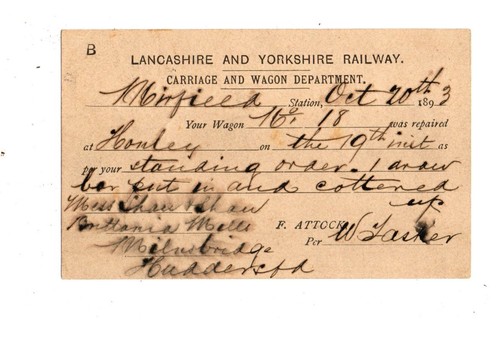 B
LANCASHIRE AND YORKSHIRE RAILWAY.
CARRIAGE AND WAGON DEPARTMENT.
Mirfield Station, Oct 20th 1893
Your Wagon No. 18 was repaired
at Honley on the 19th inst as
per your standing order. 1 draw
bar put in and cottered
up
Mess Shaw & Shaw
Brittania Mills
F. ATTOCK,
Milnsbridge
Per W Tasker
Huddersfd